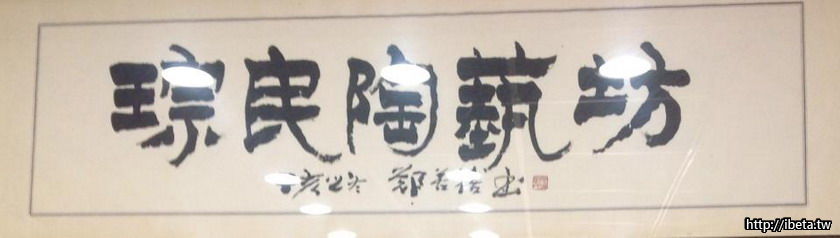 琮民陶藝坊
之冬 鄭善禧書
http://ibeta.tw